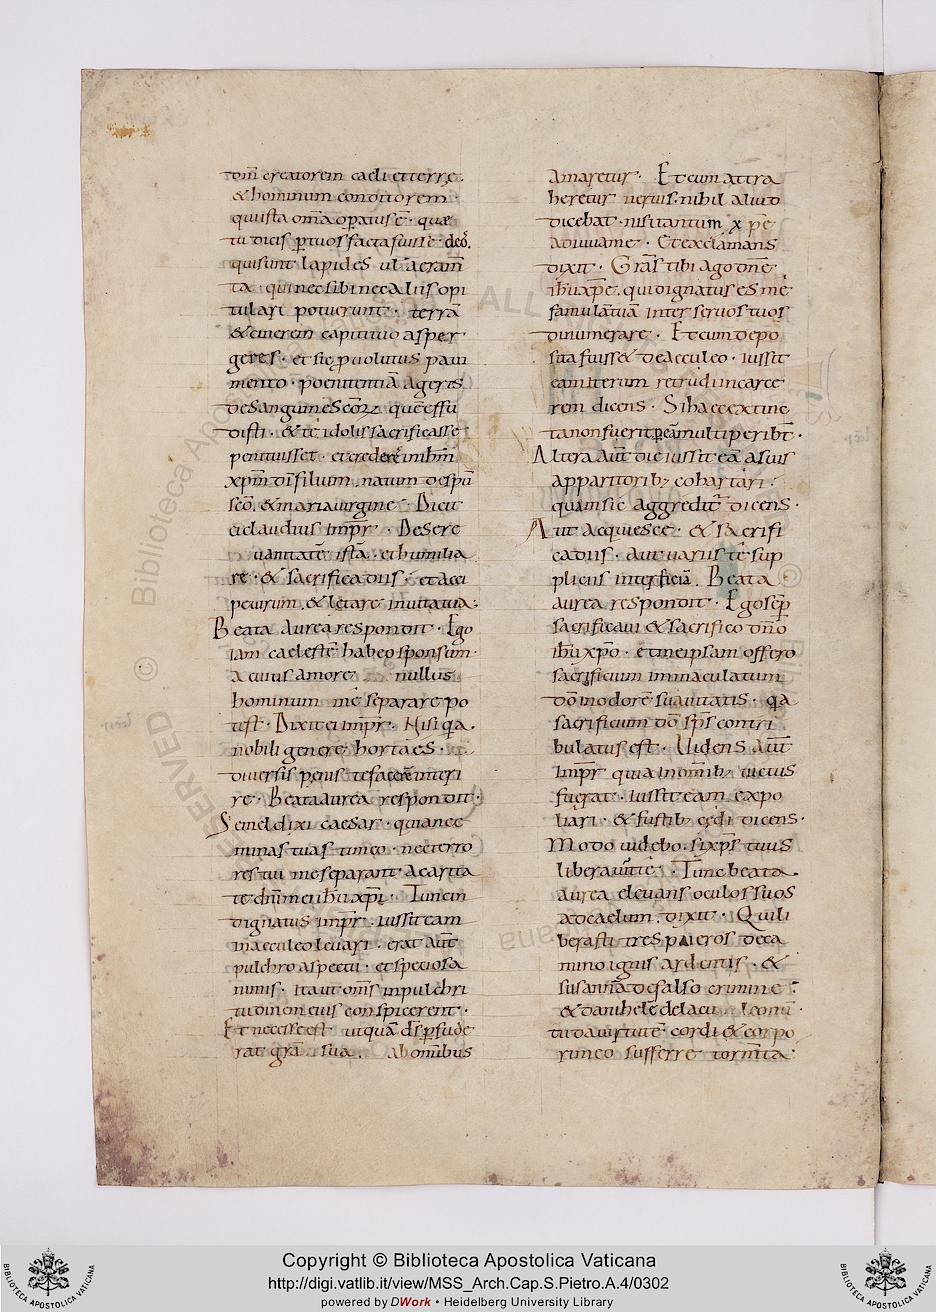 tom̄ creatorem caeli et terrę.
& hominum conditorem ·
qui ista om̄a op̄atus ē · quæ
tu dicis p̄ tuos facta fuisse deos.
qui sunt lapides ul aeram̄
ta · qui nec sibi nec aliis opi
tulari potuerunt · terrā
& cinerem capiti tuo asper
geres · et sic p̄uolutus paui
mento · poenitentiā ageres
de sanguine scōꝝ quē effu
disti · & te idolis sacrificasse
penituisset · et crederes in dn̄m
xp̄m dī filium · natum de spū
scō, & maria uirgine · Dicit
ei claudius Imp̄r · Desere
uanitatē istā · et humilia
re · & sacrifica diis · et acci
pe uirum · & letare in uita tua ·
Beata Aurea respondit · Ego
iam caelestē habeo sponsum ·
a cuius amore nullus
hominum me separare po
test · Dixit ei imp̄r · Nisi q̄a
nobili genere horta es ·
diuersis pęnis te facerē interi
re · Beata aurea respondit ·
Semel dixi caesar · quia nec
minas tuas timeo · nec terro
res tui me separant a carita
te dn̄i mei ih̄u xp̄i · Tunc in
dignatus imp̄r · iussit eam
in aeculeo leuari · erat aūt
pulchro aspectu · et speciosa
nimis · Ita ut om̄s in pulchri
tudinem eius conspicerent ·
Et necesse est ut quā d̄s p̄fude
rat grā sua · ab omnibus
Amaretur · Et cum attra
heretur neruis · nihil aliud
dicebat · nisi tantum xp̄e
adiuua me · Et exclamans
dixit · Grās tibi ago dn̄e
ih̄u xp̄e · qui dignatus es me
famulā tuā inter seruos tuos
dinumerare · Et cum depo
sita fuiss& de aeculeo · iussit
eam iterum retrudi in carce
rem dicens · Si haec extinc
ta non fuerit p̄ eā multi peribt̄ ·
Altera aūt die iussit eā a suis
apparitorib; cohartari ·
quam sic aggreditr̄ dicens ·
Aut acquiesce · & sacrifi
ca diis · aut uariis te sup
pliciis interficiā · Beata
aurea respondit · Ego sēp
sacrificaui & sacrifico dn̄o
ih̄u xp̄o · et me ipsam offero
sacrificium immaculatum
dō in odorē suauitatis · q̄a
sacrificium dō sp̄s contri
bulatus est · Uidens aūt
Imp̄r quia in om̄ib; uictus
fuerat · iussit eam expo
liari · & fustib; cędi dicens ·
Modo uidebo · si xp̄s tuus
liberauit te · Tunc beata
aurea eleuans oculos suos
ad caelum · dixit · Qui li
berasti tres pueros de ca
mino ignis ardentis · &
susannā de falso crimine ·
& danihele de lacu leonū ·
tu da uirtutē cordi & corpo
ri meo sufferre torm̄ta ·
Copyright © Biblioteca Apostolica Vaticana
http://digi.vatlib.it/view/MSS_Arch.Cap.S.Pietro.A.4/0302
powered by DWork • Heidelberg University Library